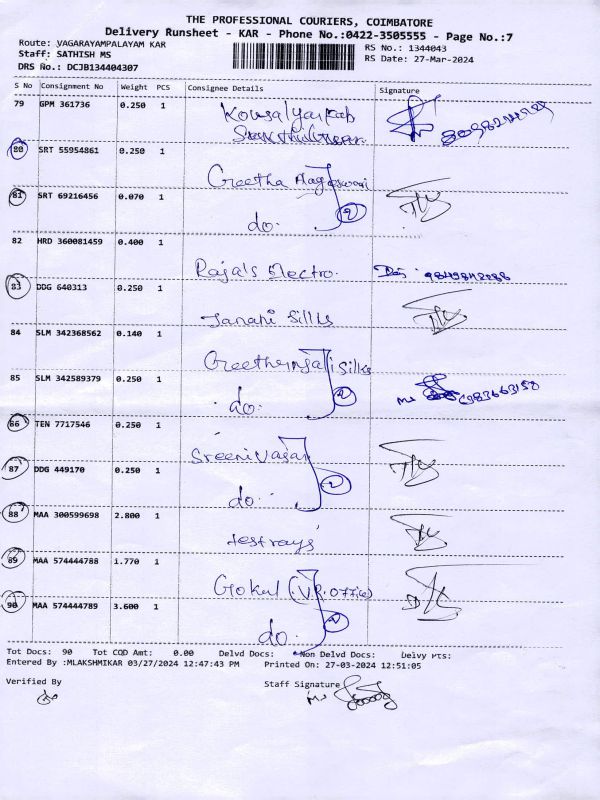 THE PROFESSIONAL COURIERS, COIMBATORE
Delivery Runsheet - KAR - Phone No.:0422-3505555 - Page No.:7
Route: VAGARAYAMPALAYAM KAR
RS No.: 1344043
Staff: SATHISH MS
RS Date: 27-Mar-2024
DRS No.: DCJB134404307
S No Consignment No Weight PCS Consignee Details Signature
79 GPM 361736 0.250 1
80 SRT 55954861 0.250 1 Geetha
81 SRT 69216456 0.070 1 do. 2
82 HRD 360081459 0.400 1 Raja's Electro.
83 DDG 640313 0.250 1 Janani Silks
84 SLM 342368562 0.140 1 Geethanjali Silks
85 SLM 342589379 0.250 1 do. 2
86 TEN 7717546 0.250 1 Sreenivasan
87 DDG 449170 0.250 1 do. 2
88 MAA 300599698 2.800 1 testrays
89 MAA 574444788 1.770 1 Gokul (V.R. Office)
90 MAA 574444789 3.600 1 do. 2
Tot Docs: 90 Tot COD Amt: 0.00 Delvd Docs: Non Delvd Docs: Delvy Pts:
Entered By :MLAKSHMIKAR 03/27/2024 12:47:43 PM Printed On: 27-03-2024 12:51:05
Verified By Staff Signature